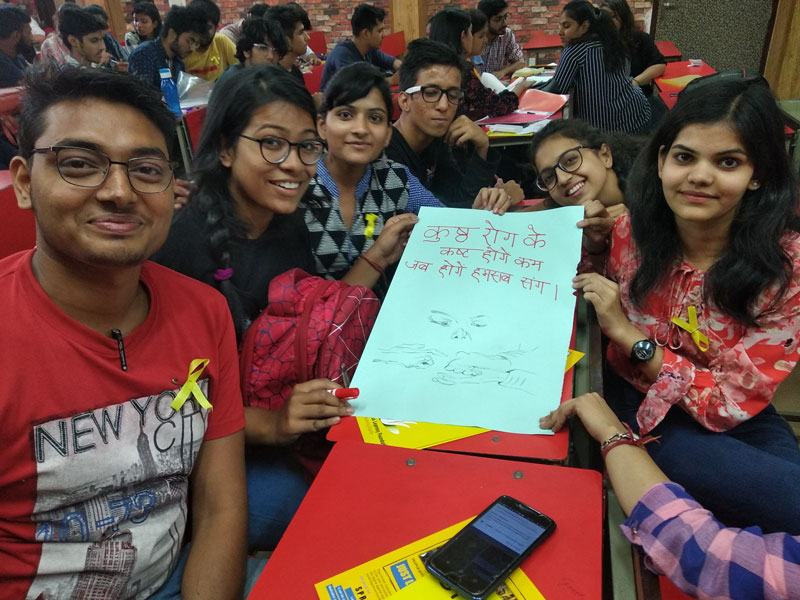 कुष्ठ रोग के
कष्ट होगे कम
जब होगे हमसब संग।
NEW YORK
CITY
JUST
SPR